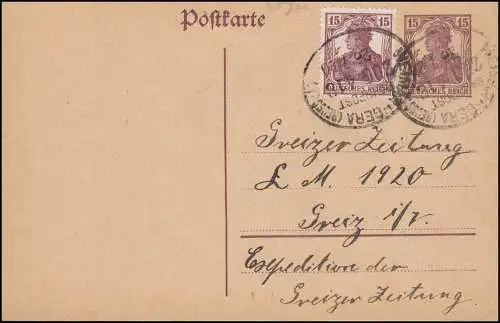 Postkarte
15 15
DEUTSCHES REICH
15 15
DEUTSCHES REICH
GERA (REUSS)
Greizer Zeitung
L M. 1920
Greiz i/v.
Expedition der
Greizer Zeitung